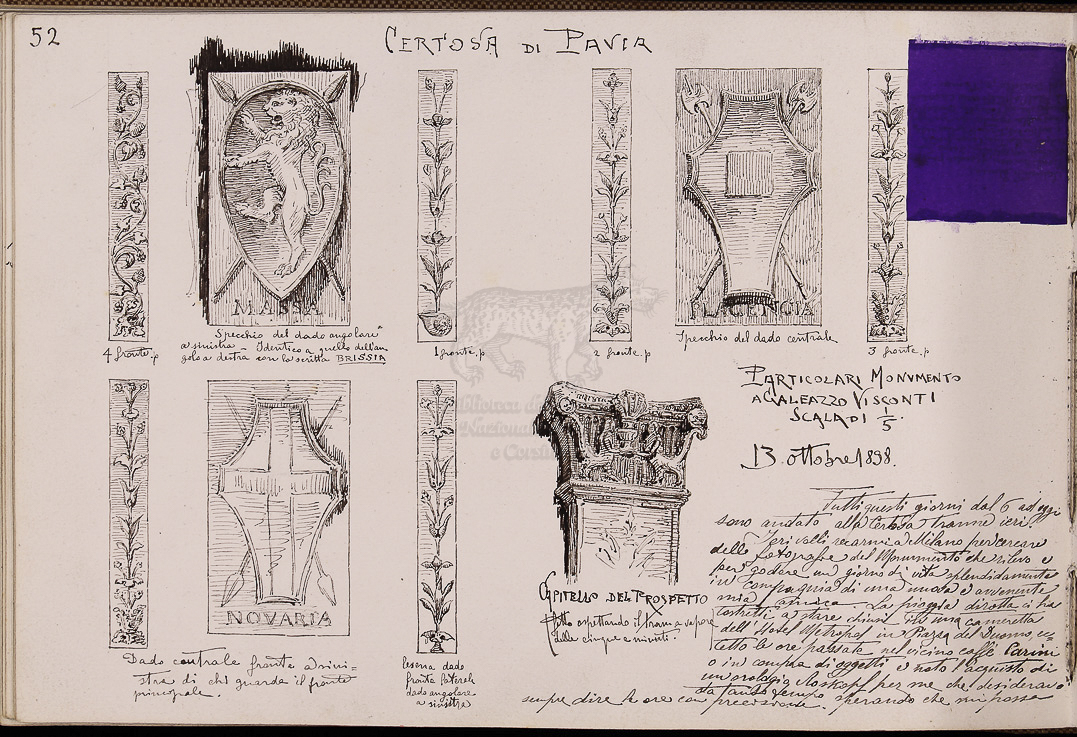 52
CERTOSA DI PAVIA
MASSA
PLACENCIA
4 fronte. p
Specchio del dado angolare
a sinistra - Identico a quello dell'an
golo a destra con la scritta BRISSIA
1 fronte. p
2 fronte. p
Specchio del dado centrale
3 fronte. p
PARTICOLARI MONVMENTO
A GALEAZZO VISCONTI
SCALA DI 1/5.
13 ottobre 1898.
NOVARIA
Dado centrale fronte a sini=
stra di chi guarda il fronte
principale.
lesena dado
fronte laterale
dado angolare
a sinistra
CAPITELLO DEL PROSPETTO
fatto aspettando il tram a vapore
delle cinque e minuti.
Tutti questi giorni dal 6 ad oggi
sono andato alla Certosa tranne ieri.
Ieri volli recarmi a Milano per cercare
delle fotografie del Monumento che rilevo e
per godere un giorno di vita splendidamente
in compagnia di una nuova e avvenente
mia amica. La pioggia dirotta ci ha
costretti a stare chiusi in una cameretta
dell'Hotel Metropol in Piazza del Duomo, ec=
cetto le ore passate nel vicino caffè Carini
o in compra di oggetti e noto l'acquisto di
un orologio Roskopf per me che desideravo
da tanto tempo sperando che mi possa
sempre dire le ore con precisione.
Biblioteca
Nazionale
e Cor